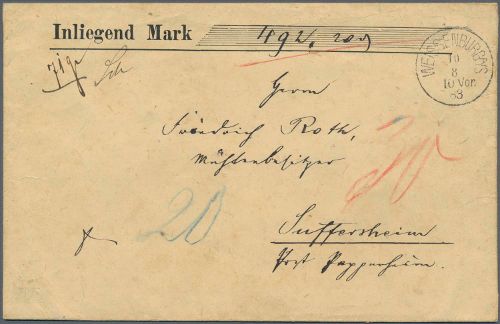 Inliegend Mark 492.
WEISSENBURG
10
8
10 Vor.
83
71 gr
Herrn
Friedrich Roth,
Mühlenbesitzer
20
20
Suffersheim
Post Pappenheim.